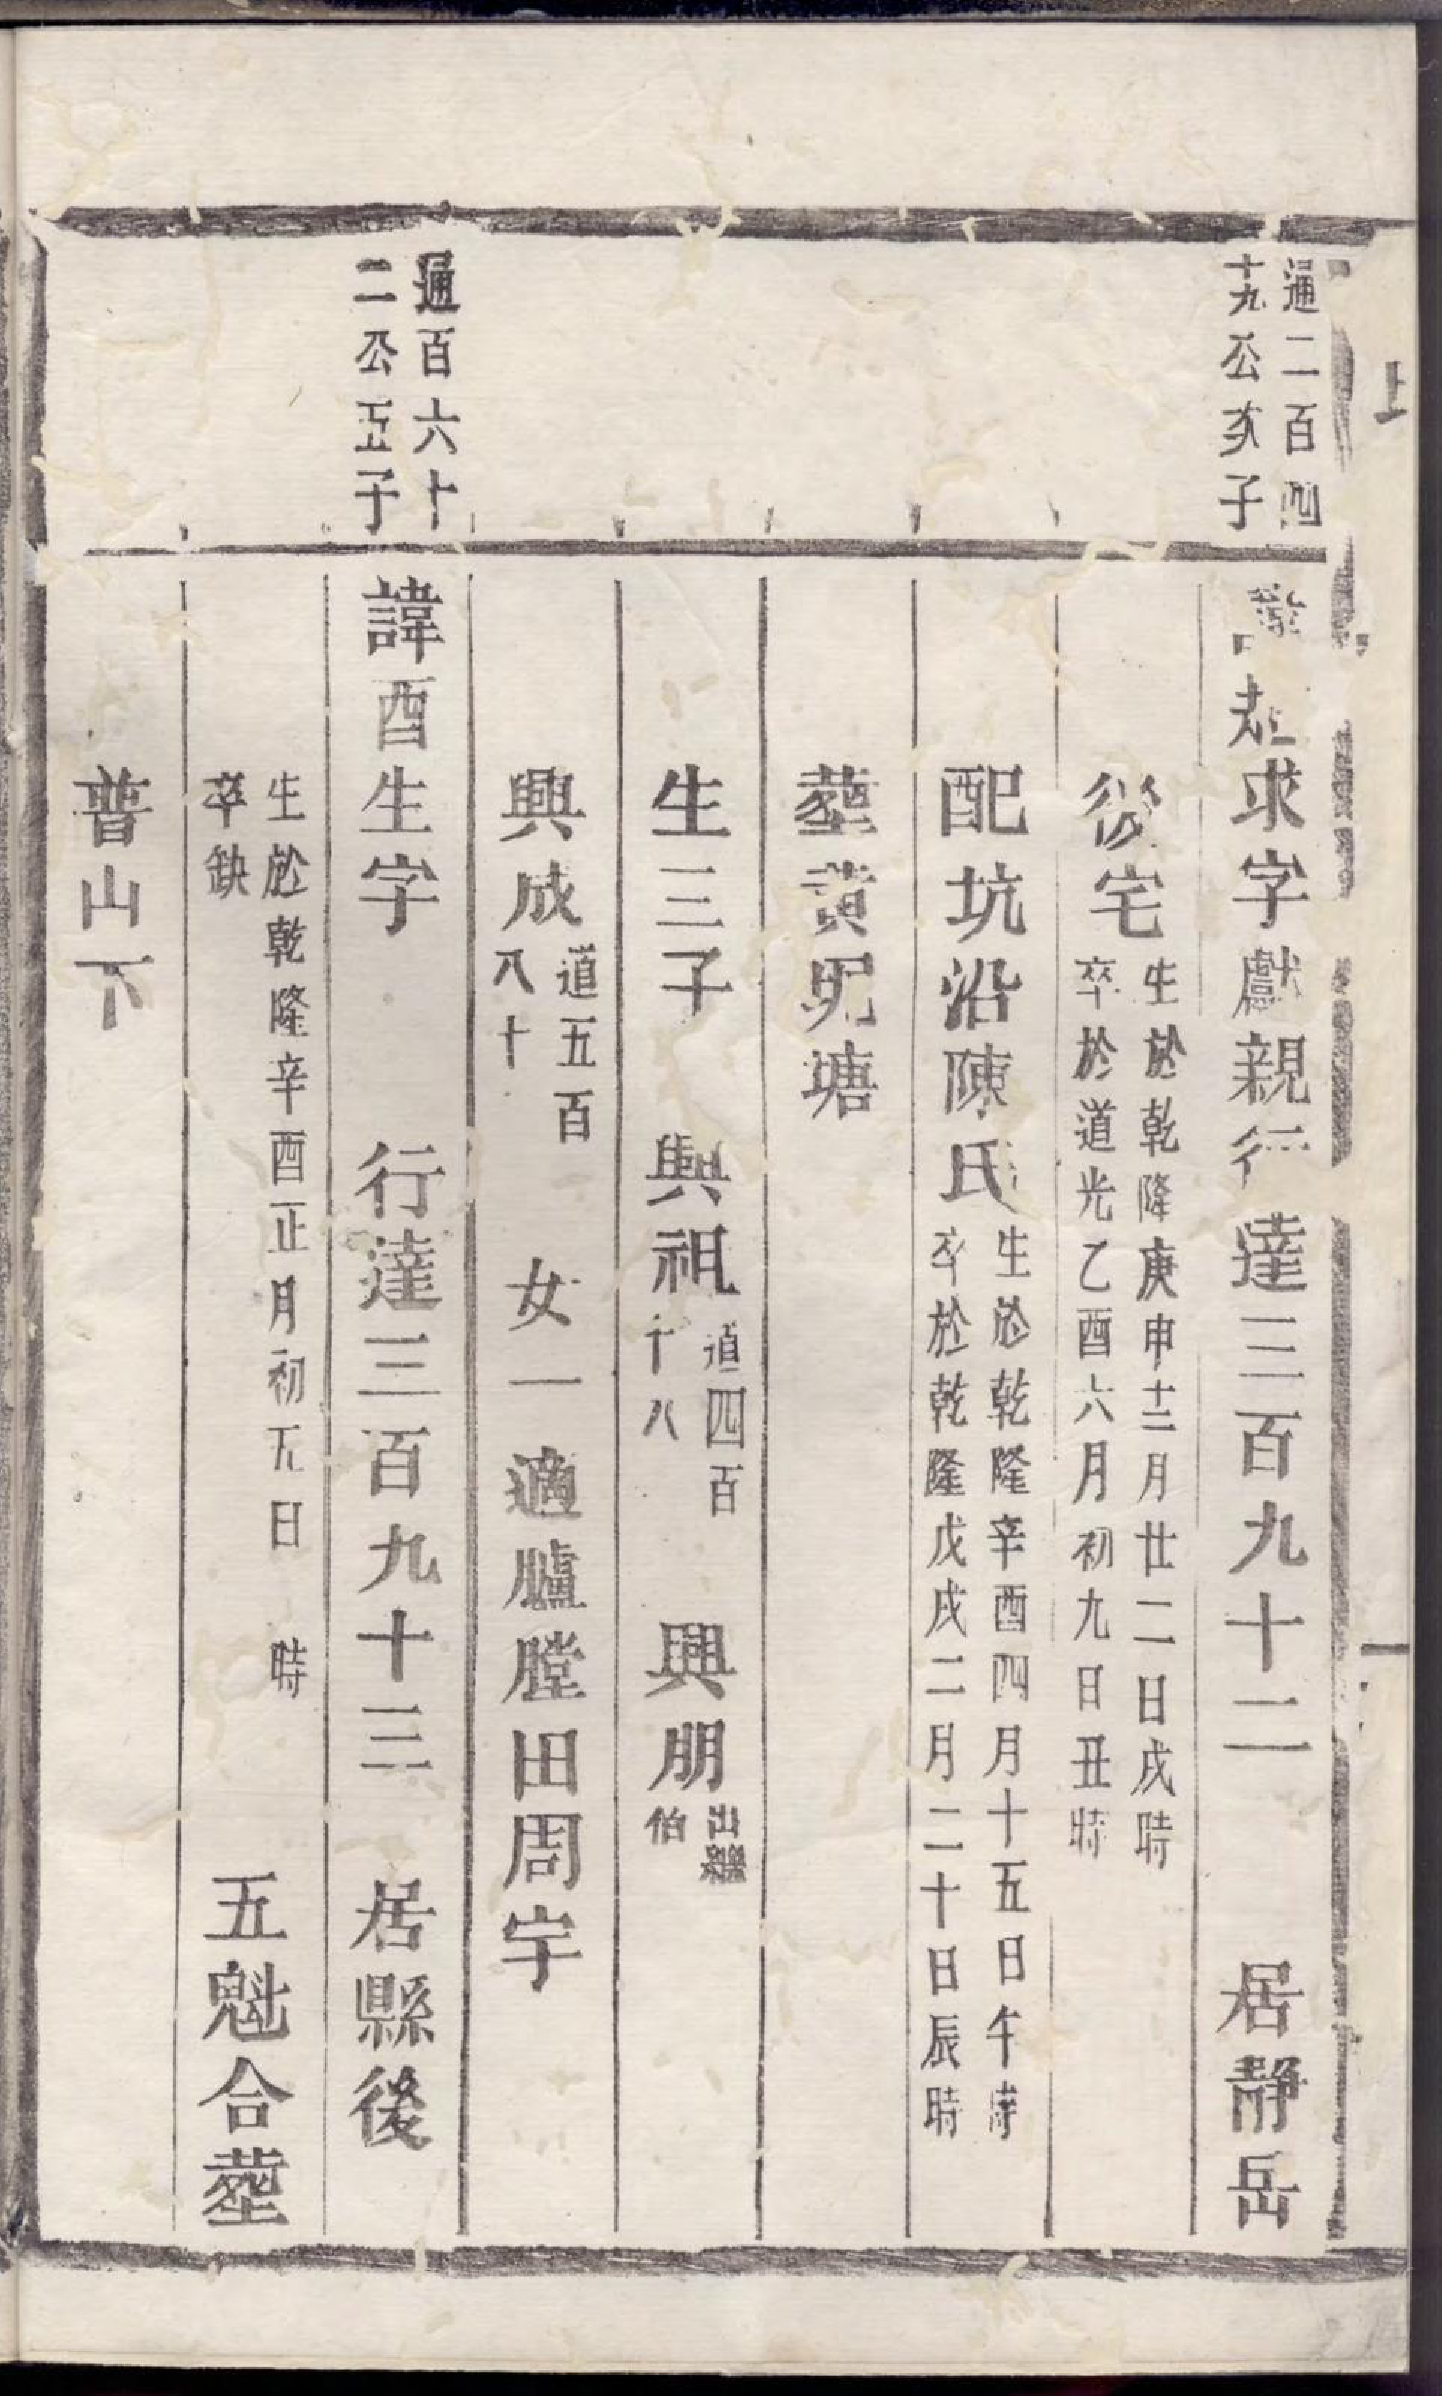 上
一
通二百四
十九公亥子
求字獻親行達三百九十二　居靜岳
後宅
生於乾隆庚申十二月廿二日戌時
卒於道光乙酉六月初九日丑時
配坑沿陳氏
生於乾隆辛酉四月十五日午時
卒於乾隆戊戌二月二十日辰時
塟黃坭塘
生三子　興祖
道四百
十八
興朋
出繼
伯
興成
道五百
八十
女一適臚膛田周宇
通百六十
二公五子
諱酉生字　行達三百九十三　居縣後
生於乾隆辛酉正月初五日　時
卒缺
五魁合塟
普山下